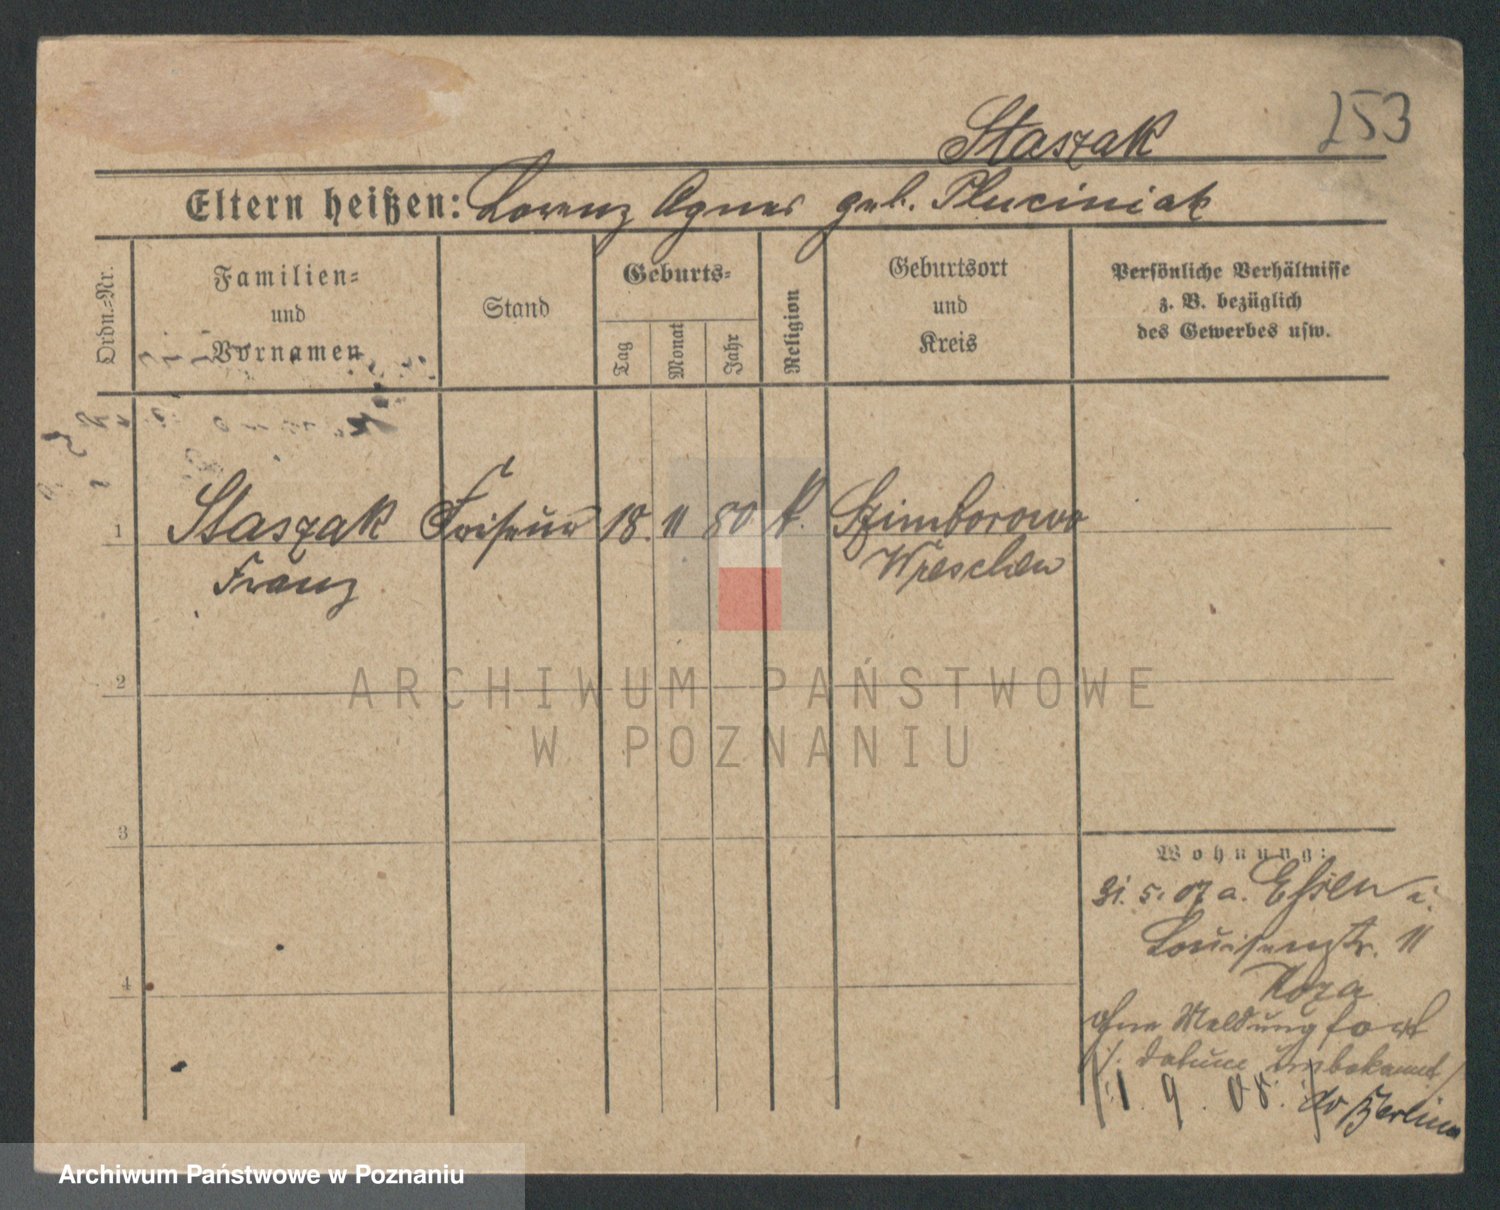 253
Staszak
Eltern heißen: Lorenz Agnes geb. Pluciniak
Ordn.-Nr.
Familien-
und
Vornamen
Stand
Geburts-
Tag
Monat
Jahr
Religion
Geburtsort
und
Kreis
Persönliche Verhältnisse
z. B. bezüglich
des Gewerbes usw.
1 Staszak Friseur 18. 11 80 k. Szimborowo
Franz Wreschen
2
3
4
Wohnung:
31. 5. 07 a. Essen
Louisenstr. 11
ohne Meldung fort
/: Datum unbekannt
1. 9. 08. Berlin
ARCHIWUM PAŃSTWOWE
W POZNANIU
Archiwum Państwowe w Poznaniu